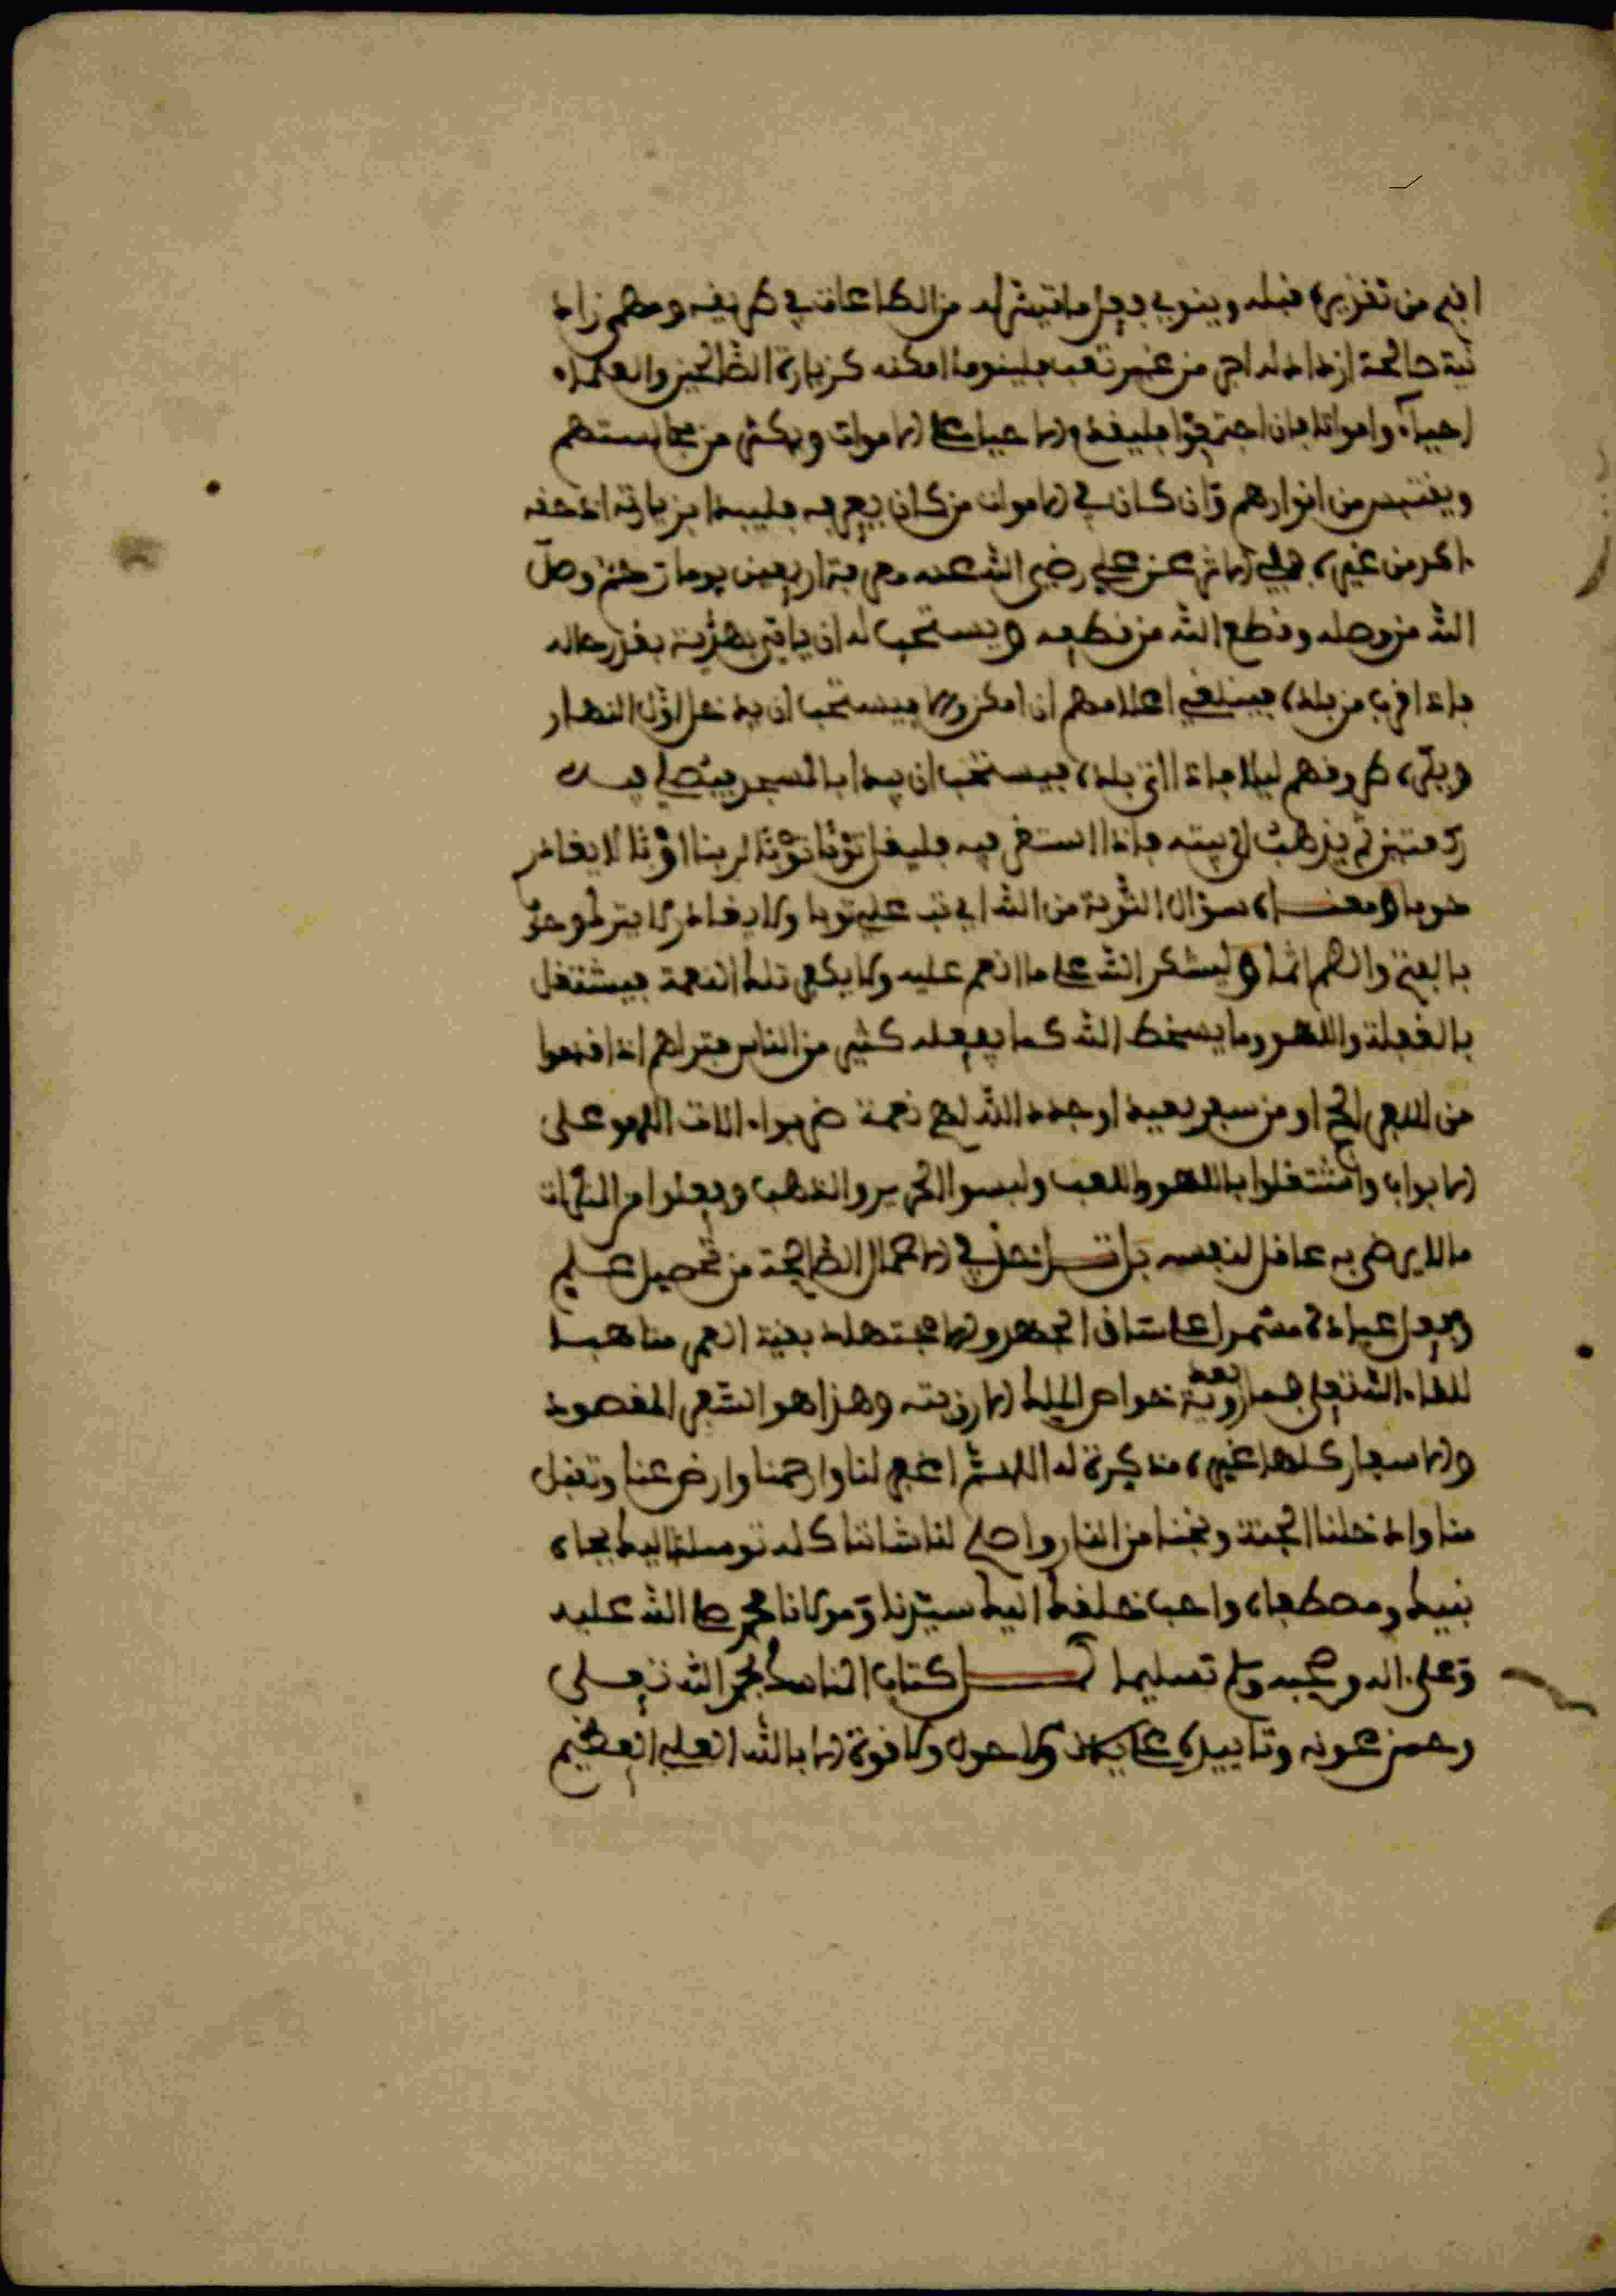 اهم من تقديره قبله وينوي بفعل ما تيسر له من الطاعات في طريقه ومهمى زاد
نية صالحة ازداد له اجر من غير تعب فلينو ما امكنه كزيارة الصالحين والعلماء
احياء وامواتا فان اجتمعوا فليقدم الاحياء على الاموات ويكثر من مجالستهم
ويقتبس من انوارهم وان كان في الاموات من كان يعرفه فليبدا بزيارته اذ حقه
ءاكد من غيره ففي الاثر عن علي رضي الله عنه معرفة اربعين يوما رحم وصل
الله من وصله وقطع الله من قطعه ويستحب له ان ياتي بهدية بقدر حاله
فاذا قرب من بلده فينبغي اعلامهم ان امكن والا فيستحب ان يدخل اول النهار
ويكره طروقهم ليلا فاذا اتى بلده فيستحب ان يبدا بالمسجد فيصلي فيه
ركعتين ثم يذهب الى بيته فاذا استقر فيه فليقل توبا توبا لربنا اوبا لا يغادر
حوبا ومعناه سؤال التوبة من الله اي تب علي توبا ولا يغادر لا يترك وحوبا
بالفتح والضم اثما وليشكر الله على ما انعم عليه ولا يكفر تلك النعمة فيشتغل
بالغفلة واللهو وما يسخط الله كما يفعله كثير من الناس فتراهم اذا قدموا
من الحج او من سفر بعيد او جدد الله لهم نعمة ضربوا ءالات اللهو على
الابواب واشتغلوا باللهو واللعب ولبسوا الحرير والذهب وفعلوا من المنكرات
ما لا يرضى به عاقل لنفسه بل في الاعمال الصالحة من تحصيل علم
وفعل عبادة مشمرا على ساق الجد والاجتهاد بقية العمر متاهبا
للقاء الله تعلى فما بعد رؤية خواص الملك الا رؤيته وهذا هو السفر المقصود
والاسفار كلها غيره مذكرة له اللهم اغفر لنا وارحمنا وارض عنا وتقبل
منا وادخلنا الجنة ونجنا من النار واصلح لنا شاننا كله توسلنا اليك بجاه
نبيك ومصطفاه واحب خلقك اليك سيدنا ومولانا محمد صلى الله عليه
وعلى ءاله وصحبه وسلم تسليما كمل كتاب المناسك بحمد الله تعلى
وحسن عونه وتاييده على ولا حول ولا قوة الا بالله العلي العظيم